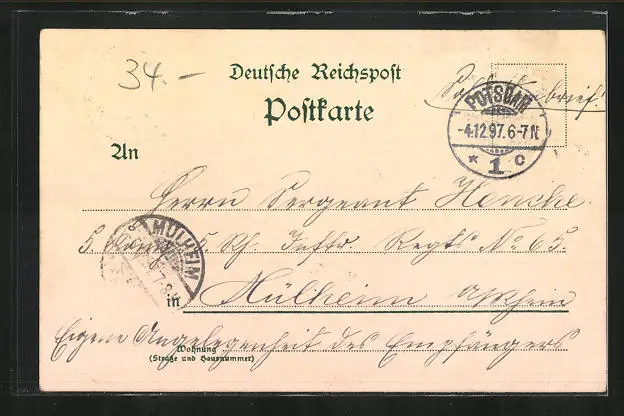 34.-
Deutsche Reichspost
Postkarte
Soldatenbrief!
POTSDAM
-4.12.97.6-7N
* 1 c
An
Herrn Sergeant Hencke
5. Komp. 5 Rh. Inftr. Regts No 65.
MÜLHEIM
in Mülheim a/Rhein
Eigene Angelegenheit des Empfängers
Wohnung
(Straße und Hausnummer)